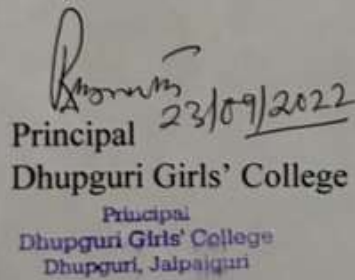 23/09/2022
Principal
Dhupguri Girls' College
Principal
Dhupguri Girls' College
Dhupguri, Jalpaiguri